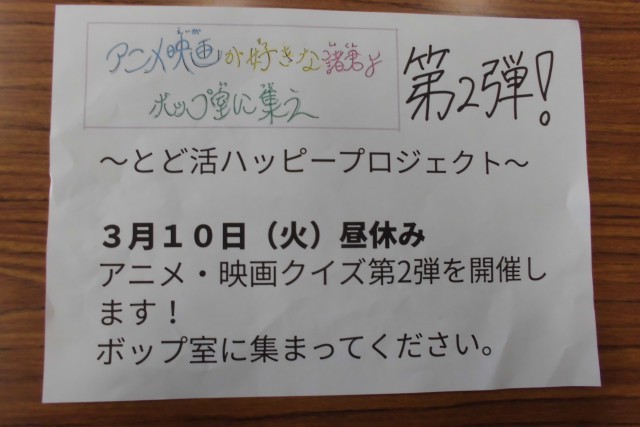 アニメ映画が好きな諸君よ
ボップ室に集え
第2弾!
～とど活ハッピープロジェクト～
３月１０日（火）昼休み
アニメ・映画クイズ第2弾を開催し
ます！
ボップ室に集まってください。